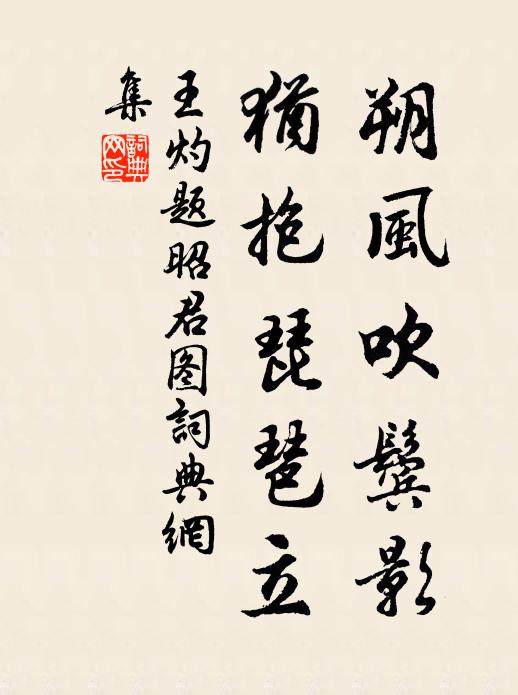 朔風吹鬢影
猶抱琵琶立
王灼題昭君图詞典網
集
詞典网印